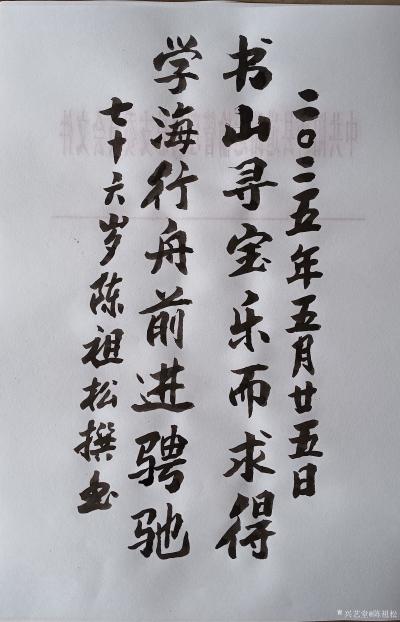 二〇二五年五月廿五日
书山寻宝乐而求得
学海行舟前进骋驰
七十六岁陈祖松撰书
兴艺堂@陈祖松